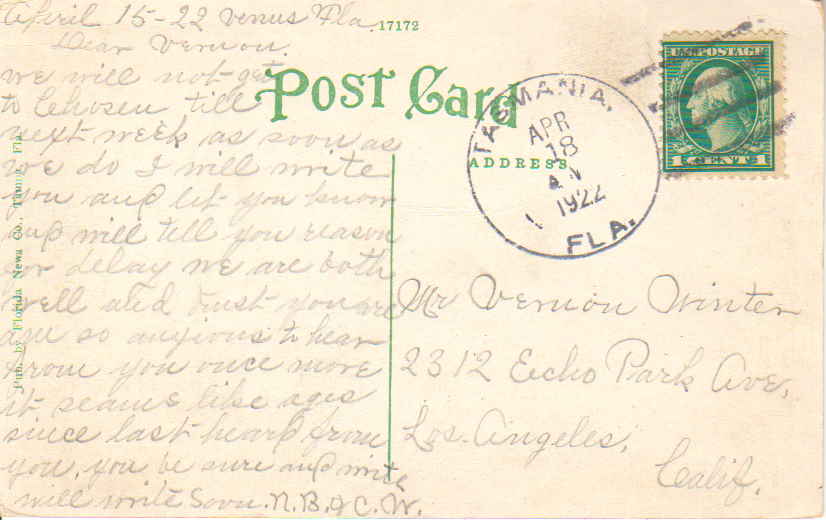 April 15-22 Venus Fla.
17172
Dear Vernon.
we will not get
to Chosen till
next week as soon as
we do I will write
you and let you know
and will tell you reason
for delay we are both
well and trust you are
am so anxious to hear
from you once more
it seams like ages
since last heard from
you, you be sure and write
will write Soon. N.B. & C.W.
POST CARD
ADDRESS
TASMANIA,
APR
18
1922
FLA.
U.S. POSTAGE
1 CENT 1
Mr Vernon Winter
2312 Echo Park Ave,
Los-Angeles,
Calif.
Pub. by Florida News Co., Tampa, Fla.